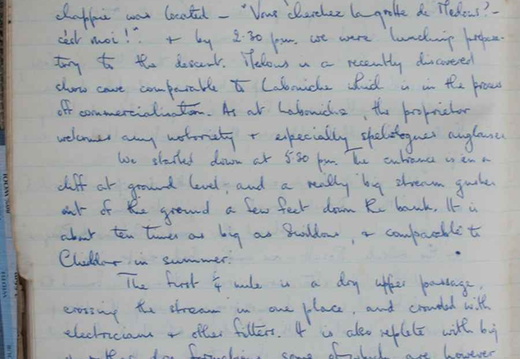 chappie was located - "Vous cherchez la grotte de Medous? -
c'est moi!" & by 2.30 pm. we were lunching prepara-
tory to the descent. Medous is a recently discovered
show cave comparable to Labouiche which is in the process
of commercialisation. As at Labouiche, the proprietor
welcomes any notoriety & especially spéléologues anglaises
We started down at 5.30 pm. The entrance is in a
cliff at ground level, and a really big stream gushes
out of the ground a few feet down the bank. It is
about ten times as big as Swildons, & comparable to
Cheddar in summer.
The first ¼ mile is a dry upper passage,
crossing the stream in one place, and crowded with
electricians & other fitters. It is also replete with big
some of which are however